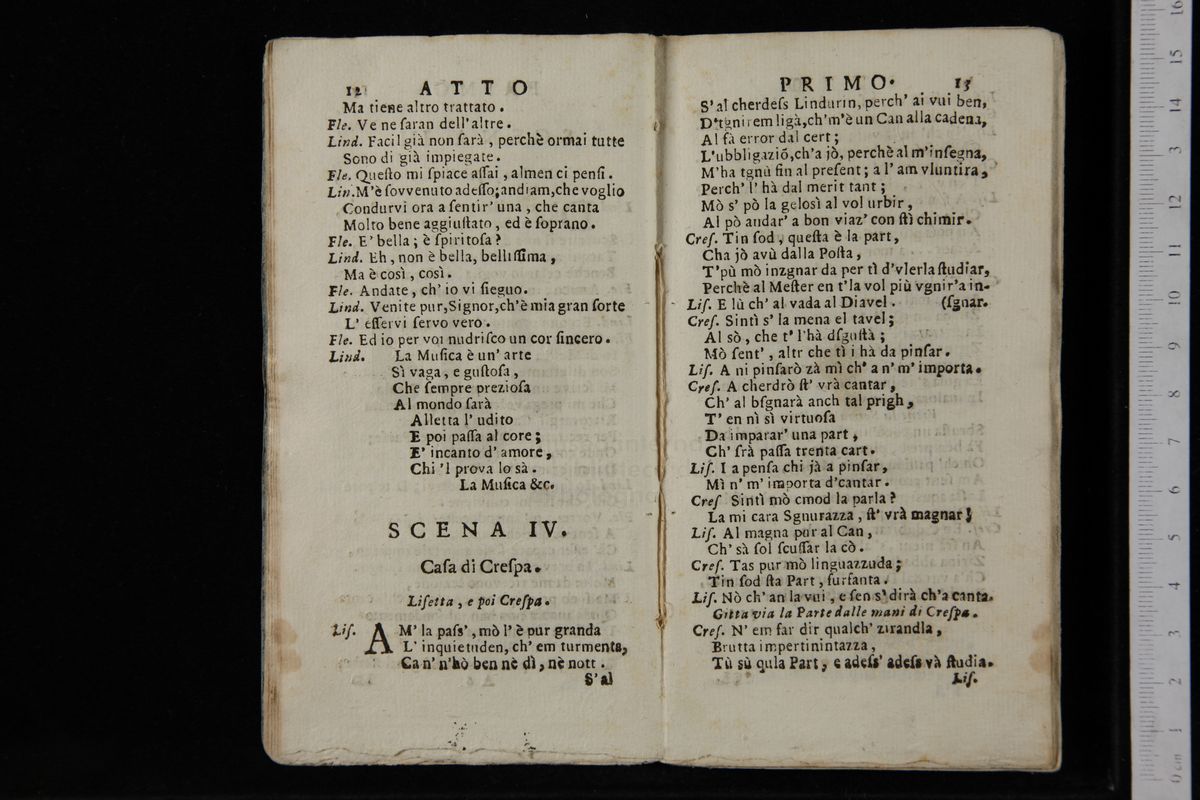 12 ATTO
Ma tiene altro trattato.
Fle. Ve ne ſaran dell'altre.
Lind. Facil già non ſarà, perchè ormai tutte
Sono di già impiegate.
Fle. Queſto mi ſpiace aſſai, almen ci penſi.
Lin. M'è ſovvenuto adeſſo; andiam, che voglio
Condurvi ora a ſentir' una, che canta
Molto bene aggiuſtato, ed è ſoprano.
Fle. E' bella; è ſpiritoſa?
Lind. Eh, non è bella, belliſſima,
Ma è così, così.
Fle. Andate, ch' io vi ſieguo.
Lind. Venite pur, Signor, ch'è mia gran ſorte
L' eſſervi ſervo vero.
Fle. Ed io per voi nudriſco un cor ſincero.
Lind. La Muſica è un' arte
Sì vaga, e guſtoſa,
Che ſempre prezioſa
Al mondo ſarà
Alletta l' udito
E poi paſſa al core;
E' incanto d' amore,
Chi 'l prova lo sà.
La Muſica &c.
SCENA IV.
Caſa di Creſpa.
Liſetta, e poi Creſpa.
Liſ. AM' la paſs', mò l' è pur granda
L' inquietuden, ch' em turmenta,
Ca n' n'hò ben nè dì, nè nott.
S'al
PRIMO. 13
S'al cherdeſs Lindurin, perch' ai vui ben,
D'tgnirem ligà, ch'm'è un Can alla cadena,
Al fà error dal cert;
L'ubbligaziõ, ch'a jò, perchè al m'inſegna,
M'ha tgnù fin al preſent; a l' am vluntira,
Perch' l' hà dal merit tant;
Mò s' pò la gelosì al vol urbir,
Al pò andar' a bon viaz' con ſtì chimir.
Creſ. Tin ſod, queſta è la part,
Cha jò avù dalla Poſta,
T'pù mò inzgnar da per tì d'vlerla ſtudiar,
Perchè al Meſter en t'la vol più vgnir'a in-
Liſ. E lù ch' al vada al Diavel. (ſgnar.
Creſ. Sintì s' la mena el tavel;
Al sò, che t' l'hà dſguſtà;
Mò ſent', altr che tì i hà da pinſar.
Liſ. A ni pinſarò zà mì ch' a n' m' importa.
Creſ. A cherdrò ſt' vrà cantar,
Ch' al bſgnarà anch tal prigh,
T' en nì sì virtuoſa
Da imparar' una part,
Ch' ſrà paſſa trenta cart.
Liſ. I a penſa chi jà a pinſar,
Mì n' m' importa d'cantar.
Creſ Sintì mò cmod la parla?
La mi cara Sgnurazza, ſt' vrà magnar!
Liſ. Al magna pur al Can,
Ch' sà ſol ſcuſſar la cò.
Creſ. Tas pur mò linguazzuda;
Tin ſod ſta Part, furfanta.
Liſ. Nò ch' an la vui, e ſen s' dirà ch'a canta.
Gitta via la Parte dalle mani di Creſpa.
Creſ. N' em far dir qualch' zirandla,
Brutta impertinintazza,
Tù sù qula Part, e adeſs' adeſs và ſtudia.
Liſ.